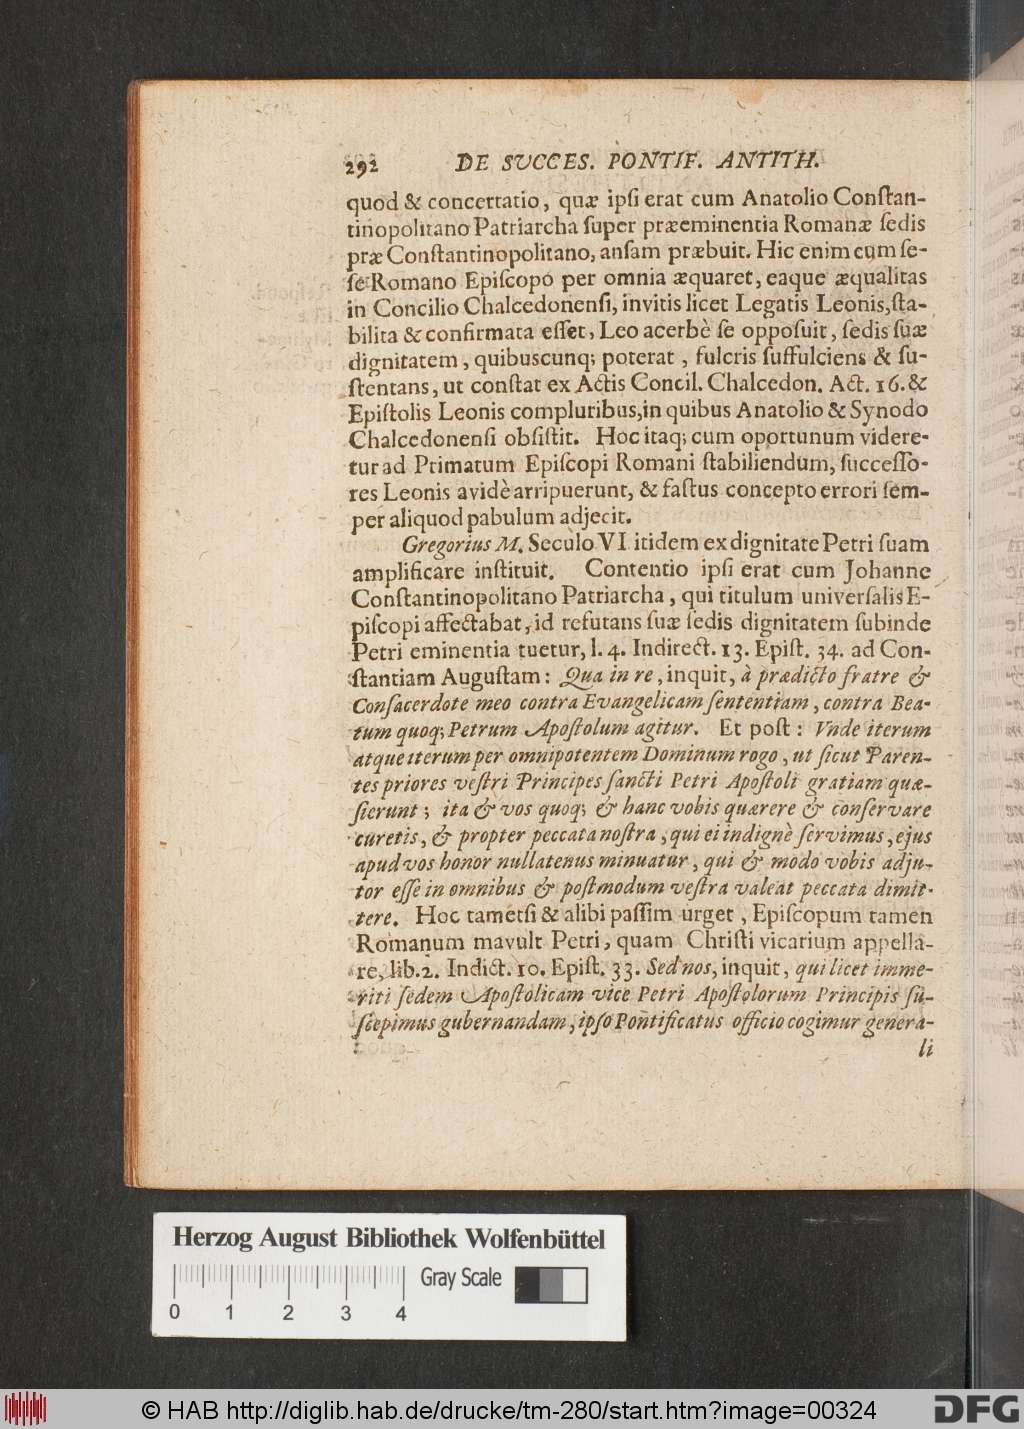 292 DE SVCCES. PONTIF. ANTITH.
quod & concertatio, quæ ipſi erat cum Anatolio Conſtan-
tinopolitano Patriarcha ſuper præeminentia Romanæ ſedis
præ Conſtantinopolitano, anſam præbuit. Hic enim cum ſe-
ſe Romano Epiſcopo per omnia æquaret, eaque æqualitas
in Concilio Chalcedonenſi, invitis licet Legatis Leonis, ſta-
bilita & confirmata eſſet, Leo acerbè ſe oppoſuit, ſedis ſuæ
dignitatem, quibuscunq; poterat, fulcris ſuffulciens & ſu-
ſtentans, ut conſtat ex Actis Concil. Chalcedon. Act. 16. &
Epiſtolis Leonis compluribus, in quibus Anatolio & Synodo
Chalcedonenſi obſiſtit. Hoc itaq; cum oportunum videre-
tur ad Primatum Epiſcopi Romani ſtabiliendum, ſucceſſo-
res Leonis avidè arripuerunt, & faſtus concepto errori ſem-
per aliquod pabulum adjecit.
Gregorius M. Seculo VI itidem ex dignitate Petri ſuam
amplificare inſtituit. Contentio ipſi erat cum Johanne
Conſtantinopolitano Patriarcha, qui titulum univerſalis E-
piſcopi affectabat, id refutans ſuæ ſedis dignitatem ſubinde
Petri eminentia tuetur, l. 4. Indirect. 13. Epiſt. 34. ad Con-
ſtantiam Auguſtam: Qua in re, inquit, à prædicto fratre &
Conſacerdote meo contra Evangelicam ſententiam, contra Bea-
tum quoq; Petrum Apoſtolum agitur. Et poſt: Vnde iterum
atque iterum per omnipotentem Dominum rogo, ut ſicut Paren-
tes priores veſtri Principes ſancti Petri Apoſtoli gratiam quæ-
ſierunt; ita & vos quoq; & hanc vobis quærere & conſervare
curetis, & propter peccata noſtra, qui ei indignè ſervimus, ejus
apud vos honor nullatenus minuatur, qui & modo vobis adju-
tor eſſe in omnibus & poſtmodum veſtra valeat peccata dimit-
tere. Hoc tametſi & alibi paſſim urget, Epiſcopum tamen
Romanum mavult Petri, quam Chriſti vicarium appella-
re, lib. 2. Indict. 10. Epiſt. 33. Sed nos, inquit, qui licet imme-
riti ſedem Apoſtolicam vice Petri Apoſtolorum Principis ſu-
ſcepimus gubernandam, ipſo Pontificatus officio cogimur genera-
li
Herzog August Bibliothek Wolfenbüttel
Gray Scale
0 1 2 3 4
© HAB http://diglib.hab.de/drucke/tm-280/start.htm?image=00324
DFG